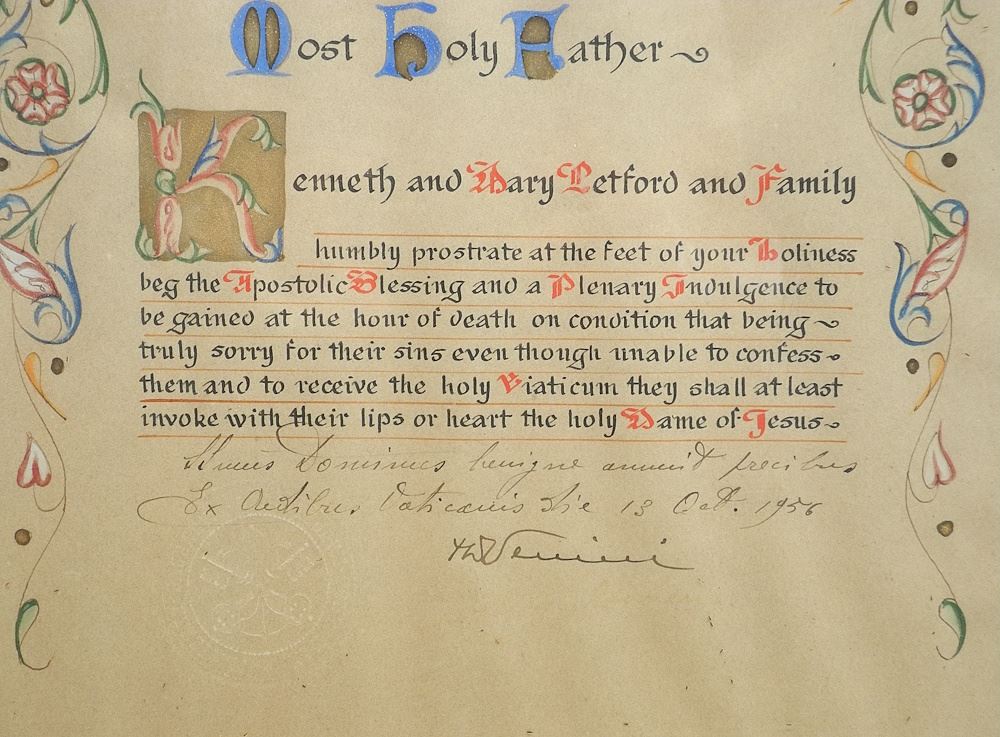 Most Holy Father
Kenneth and Mary Letford and Family
humbly prostrate at the feet of your Holiness
beg the Apostolic Blessing and a Plenary Indulgence to
be gained at the hour of death on condition that being
truly sorry for their sins even though unable to confess
them and to receive the holy Viaticum they shall at least
invoke with their lips or heart the holy Name of Jesus
Dominus benigne annuit precibus
Ex Aedibus Vaticanis die 13 Oct. 1956